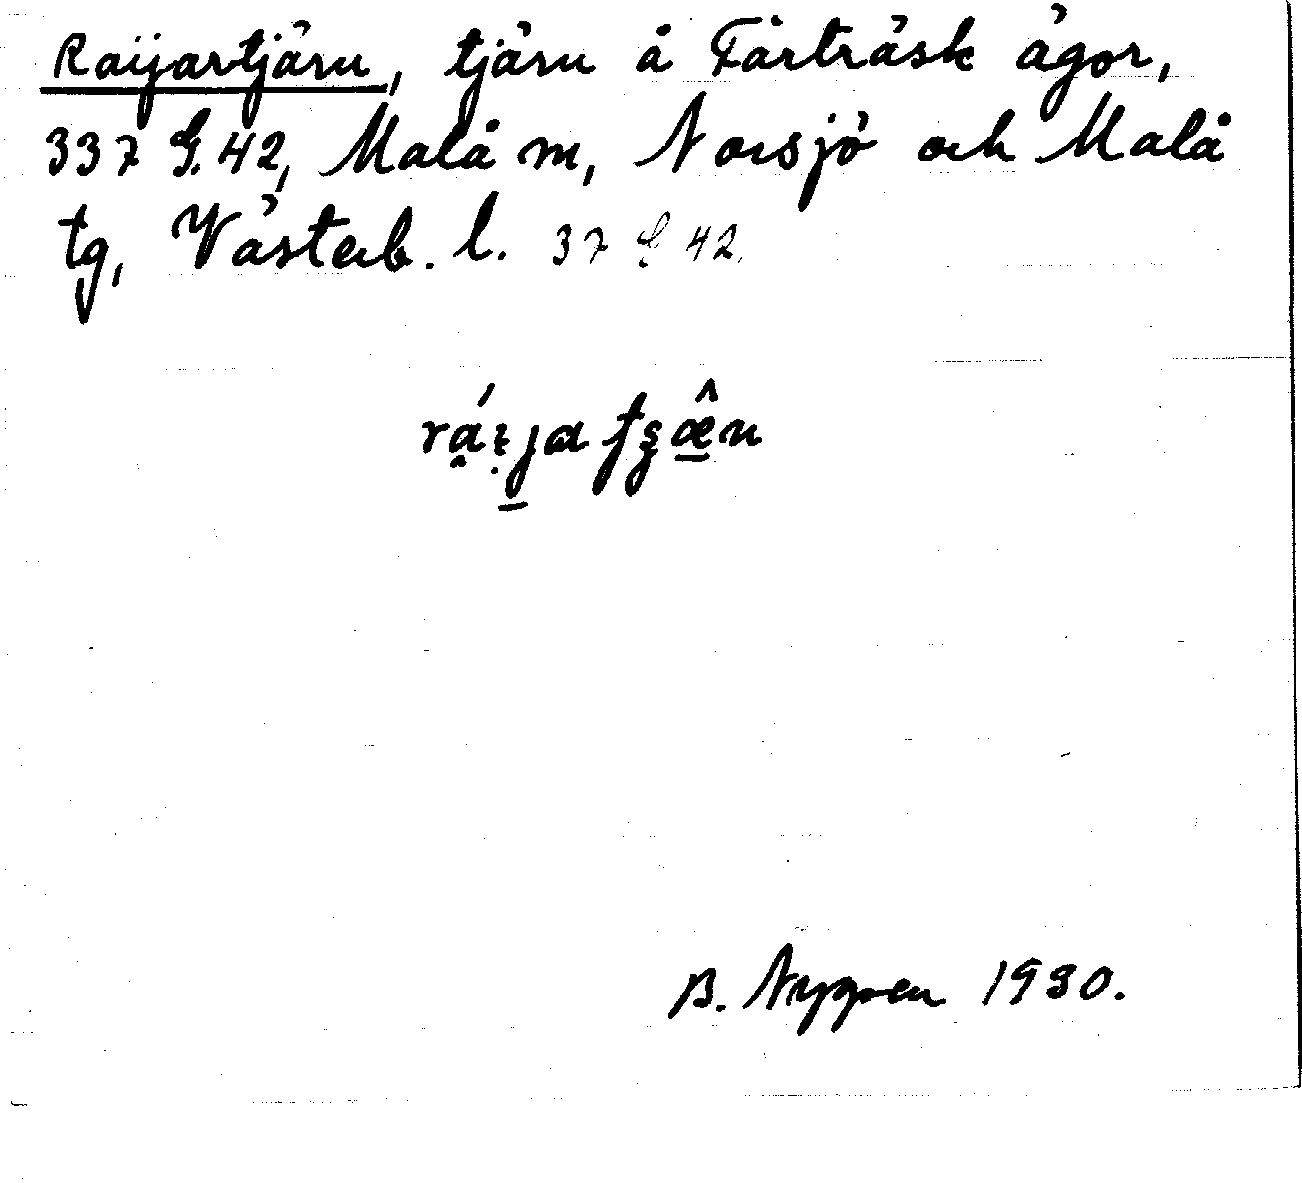 Raijartjärn, tjärn å Fårträsk ägor,
337 G. 42, Malå m, Norsjö och Malå
tg, Västerb. l. 37 G 42.
B. Nyppen 1930.